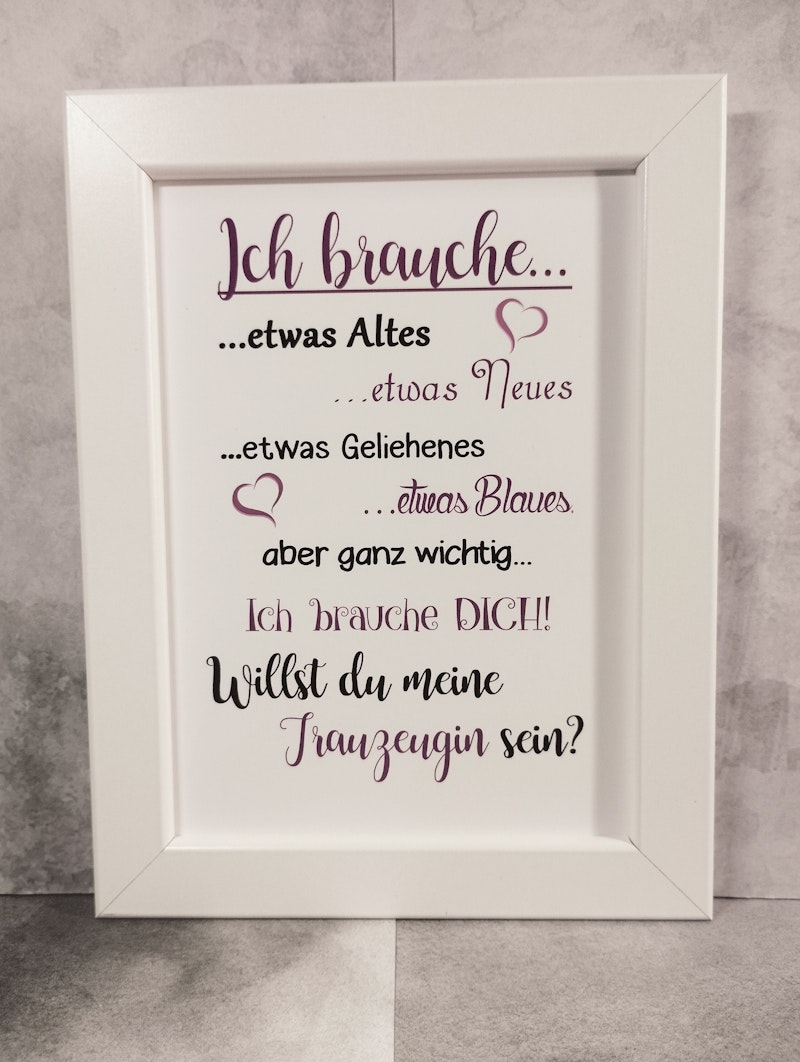 Ich brauche...
...etwas Altes
...etwas Neues
...etwas Geliehenes
...etwas Blaues.
aber ganz wichtig...
Ich brauche DICH!
Willst du meine
Trauzeugin sein?